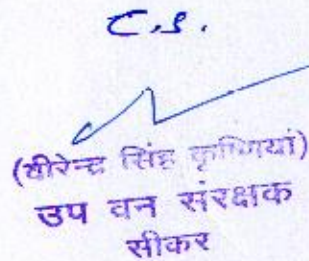 C.S.
(वीरेन्द्र सिंह कृष्णियां)
उप वन संरक्षक
सीकर